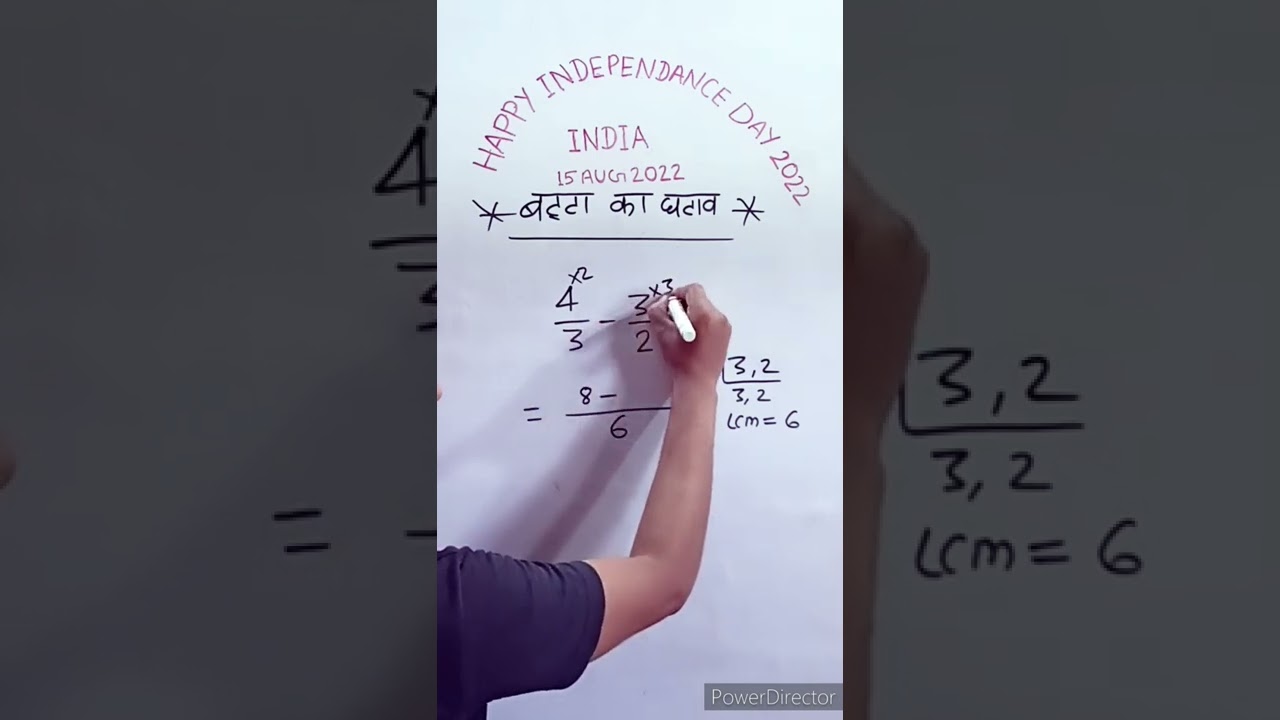 HAPPY INDEPENDANCE DAY 2022
INDIA
15 AUG 2022
* बट्टा का घटाव *
4 ×2 / 3 - 3 ×3 / 2
= 8 - / 6
3, 2
3, 2
LCM = 6
PowerDirector